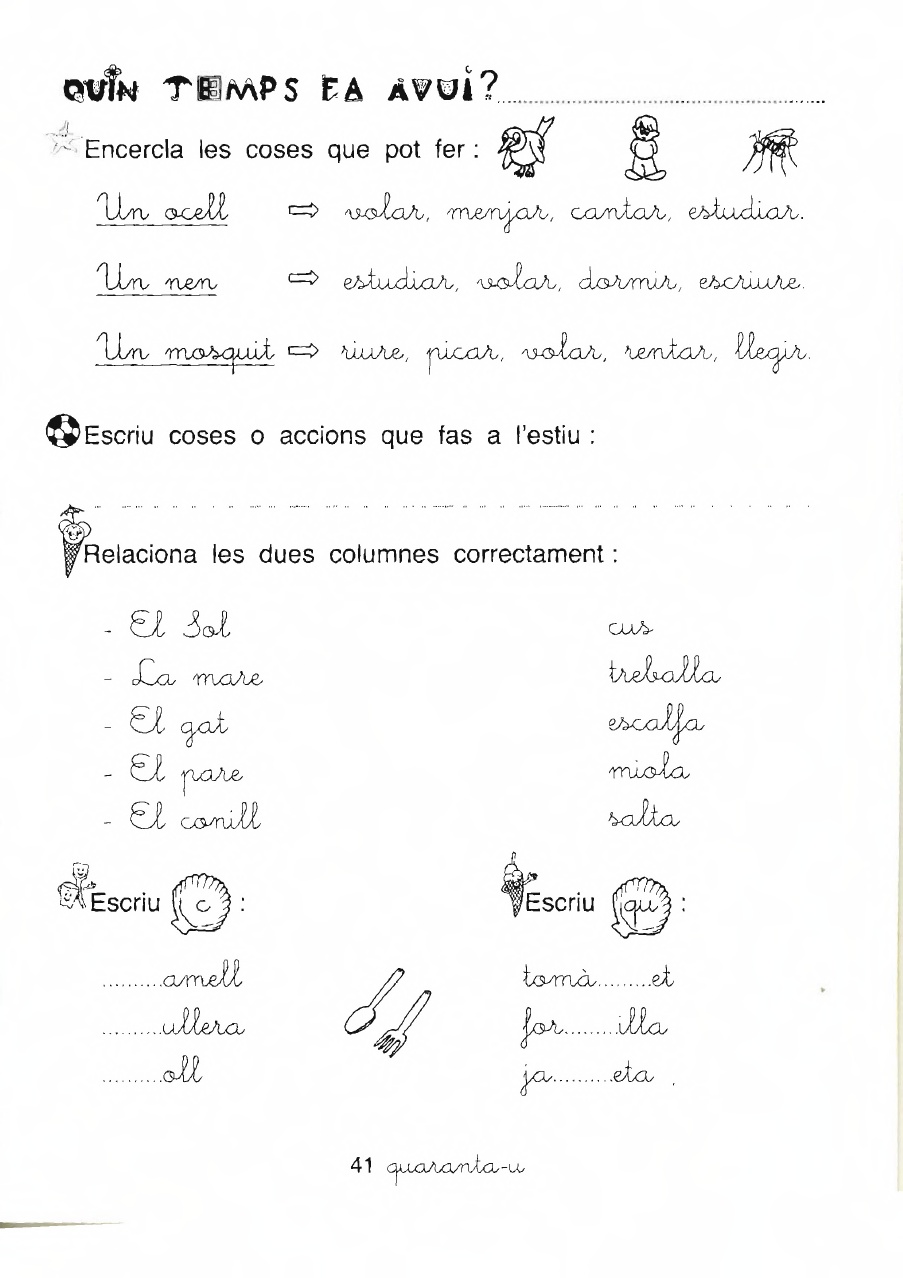 QUIN TEMPS FA AVUI?
Encercla les coses que pot fer :
Un ocell ⇨ volar, menjar, cantar, estudiar.
Un nen ⇨ estudiar, volar, dormir, escriure.
Un mosquit ⇨ riure, picar, volar, rentar, llegir.
Escriu coses o accions que fas a l'estiu :
Relaciona les dues columnes correctament :
- El Sol cus
- La mare treballa
- El gat escalfa
- El pare miola
- El conill salta
Escriu c : Escriu qu :
..........amell tomà.........et
..........ullera for.........illa
..........oll ja..........eta .
41 quaranta-u